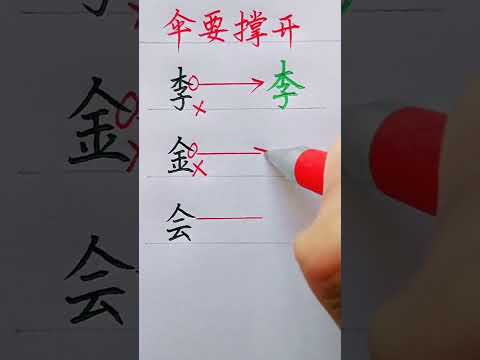 伞要撑开
李 李
金
会